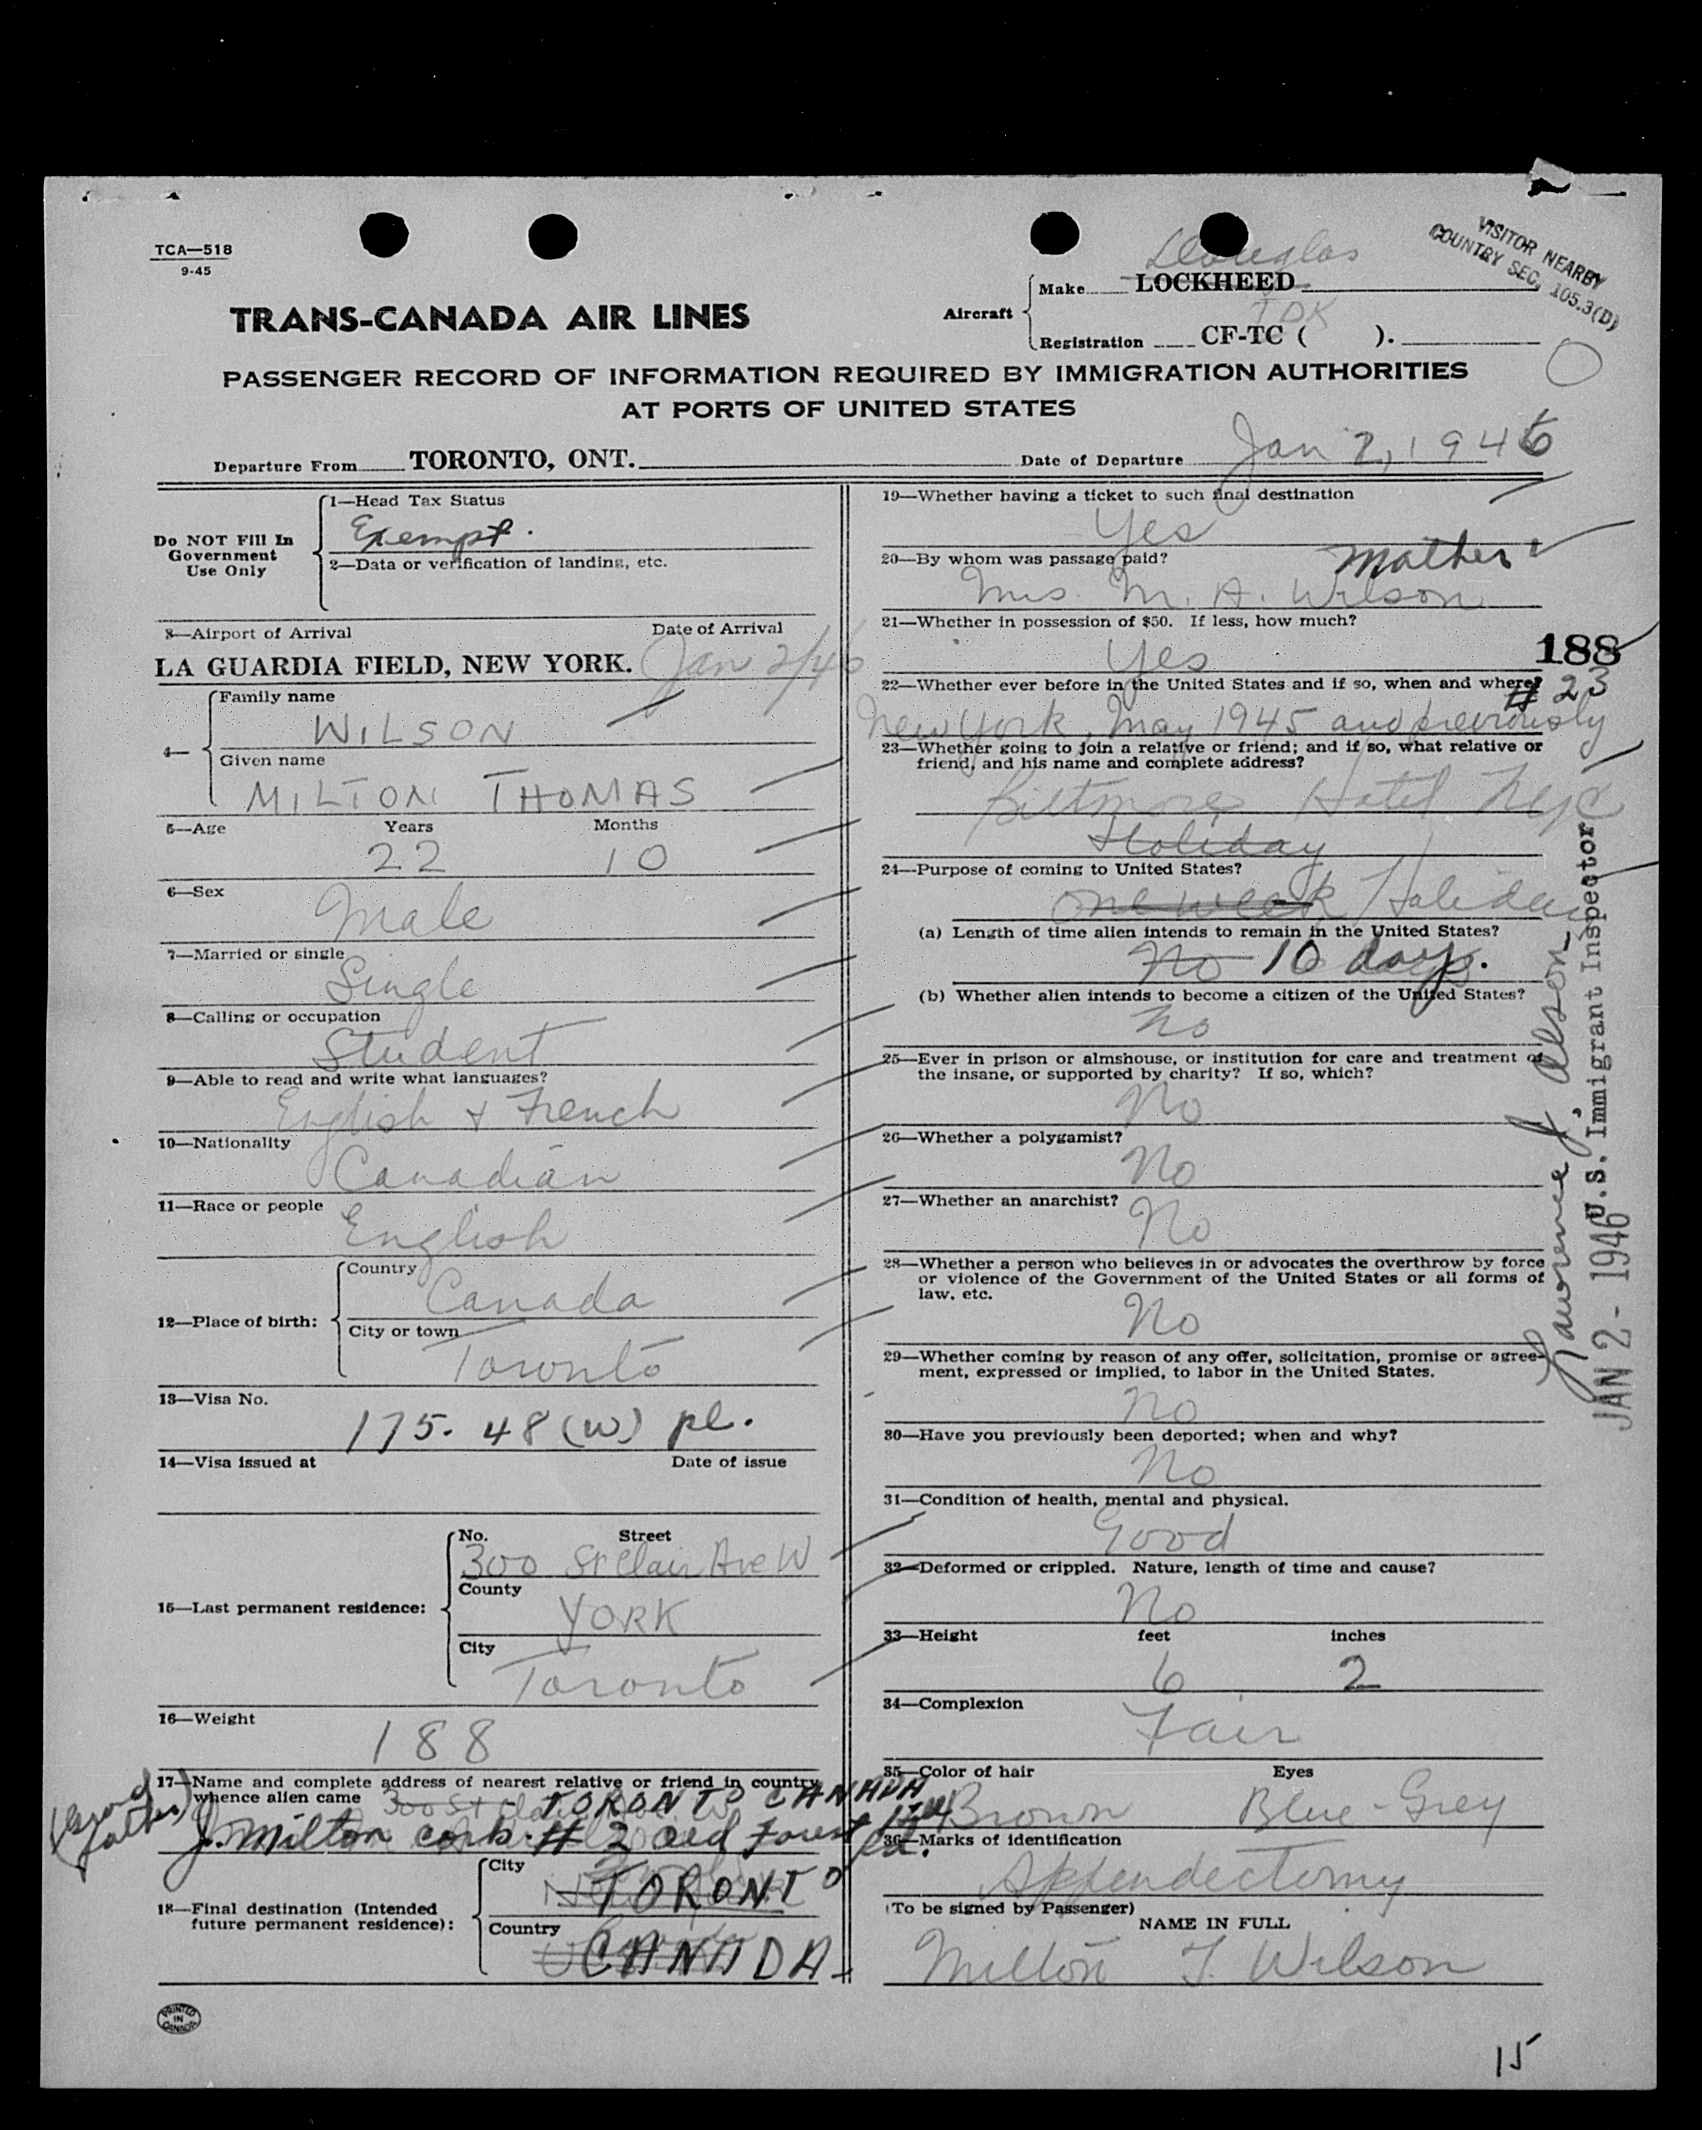 TCA—518
9-45
VISITOR NEARBY
COUNTRY SEC. 105.3(D)
TRANS-CANADA AIR LINES
Douglas
Aircraft
Make LOCKHEED
TDK
Registration CF-TC ( ).
PASSENGER RECORD OF INFORMATION REQUIRED BY IMMIGRATION AUTHORITIES
AT PORTS OF UNITED STATES
Departure From TORONTO, ONT.
Date of Departure Jan 2, 1946
Do NOT Fill In
Government
Use Only
1—Head Tax Status
Exempt.
2—Data or verification of landing, etc.
3—Airport of Arrival Date of Arrival
LA GUARDIA FIELD, NEW YORK. Jan 2/46
4—
Family name
WILSON
Given name
MILTON THOMAS
5—Age Years Months
22 10
6—Sex
Male
7—Married or single
Single
8—Calling or occupation
Student
9—Able to read and write what languages?
English + French
10—Nationality
Canadian
11—Race or people
English
12—Place of birth:
Country
Canada
City or town
Toronto
13—Visa No.
175. 48 (W) pl.
14—Visa issued at Date of issue
15—Last permanent residence:
No. Street
300 St Clair Ave W
County
YORK
City
Toronto
16—Weight
188
17—Name and complete address of nearest relative or friend in country
whence alien came 300 St Clair TORONTO CANADA
(Grand
father)
J. Milton Cork. # 2 Old Forest Hill
Rd.
18—Final destination (Intended
future permanent residence):
City
TORONTO
Country
CANADA
PRINTED
IN
CANADA
19—Whether having a ticket to such final destination
Yes
20—By whom was passage paid? Mother
Mrs. M. A. Wilson
21—Whether in possession of $50. If less, how much?
Yes
188
22—Whether ever before in the United States and if so, when and where?
# 23
New York, May 1945 and previously
23—Whether going to join a relative or friend; and if so, what relative or
friend, and his name and complete address?
Biltmore Hotel NYC
Holiday
24—Purpose of coming to United States?
One week Holiday
(a) Length of time alien intends to remain in the United States?
No 10 days.
(b) Whether alien intends to become a citizen of the United States?
No
25—Ever in prison or almshouse, or institution for care and treatment of
the insane, or supported by charity? If so, which?
No
26—Whether a polygamist?
No
27—Whether an anarchist?
No
28—Whether a person who believes in or advocates the overthrow by force
or violence of the Government of the United States or all forms of
law, etc.
No
29—Whether coming by reason of any offer, solicitation, promise or agree-
ment, expressed or implied, to labor in the United States.
No
30—Have you previously been deported; when and why?
No
31—Condition of health, mental and physical.
Good
32—Deformed or crippled. Nature, length of time and cause?
No
33—Height feet inches
6 2
34—Complexion
Fair
35—Color of hair Eyes
Brown Blue-Grey
36—Marks of identification
Appendectomy
(To be signed by Passenger)
NAME IN FULL
Milton T. Wilson
Lawrence J.
U.S. Immigrant Inspector
JAN 2 - 1946
15